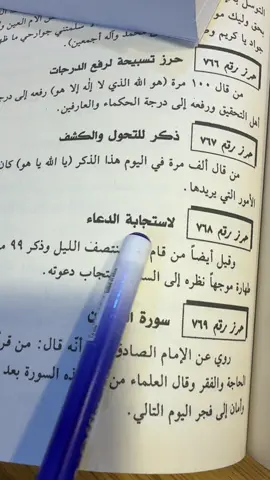 جواد يا كريم
حرز رقم ٧٦٦
حرز تسبيحة لرفع الدرجات
من قال ١٠٠ مرة (هو الله الذي لا إله إلا هو) رفعه إلى درجة
أهل التحقيق ورفعه إلى درجة الحكماء والعارفين.
حرز رقم ٧٦٧
ذكر للتحول والكشف
من قال ألف مرة في اليوم هذا الذكر (يا الله يا هو) كان
الأمور التي يريدها.
حرز رقم ٧٦٨
لاستجابة الدعاء
وقيل أيضاً من قام منتصف الليل وذكر ٩٩ مرة
طهارة موجهاً نظره إلى دعوته.
حرز رقم ٧٦٩
سورة
روي عن الإمام الصادق أنّه قال: من
الحاجة والفقر وقال العلماء من السورة بعد
وأمان إلى فجر اليوم التالي.